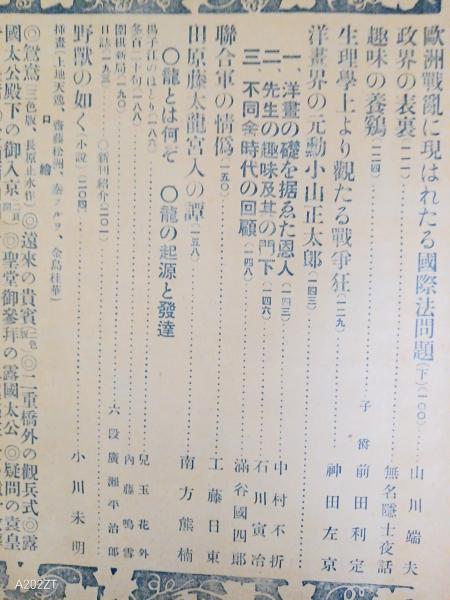 歐洲戰亂に現はれたる國際法問題(下)(一〇〇)……山川端夫
政界の表裏(一一一)……無名隱士夜話
趣味の養鷄(一二四)……子爵 前田利定
生理學上より觀たる戰爭狂(一二九)……神田左京
洋畫界の元勳小山正太郎(一四三)
一、洋畫の礎を据ゑた恩人(一四三)……中村不折
二、先生の趣味及其の門下(一四六)……石川寅治
三、不同舍時代の回顧(一四八)……滿谷國四郎
聯合軍の情僞(一五〇)……工藤日東
田原藤太龍宮入の譚(一五八)……南方熊楠
〇龍とは何ぞ 〇龍の起源と發達
揚子江のほとり(一八六)……兒玉花外
冬百二十句(一八八)……內藤鳴雪
圍棋新局(一九〇)……六段 廣瀨平治郎
日誌(一九三)……〇新刊紹介(二〇一)
野獸の如く(小說)(二〇四)……小川未明
插畫(上地天逸、齋藤松洲、秦テルヲ、金島桂華)
口繪
◎鴛鴦(三色版、長原止水作)◎遠來の貴賓(三色版)◎二重橋外の觀兵式◎露
國太公殿下の御入京(二頁開)◎聖堂御參拜の露國太公◎疑問の袁皇